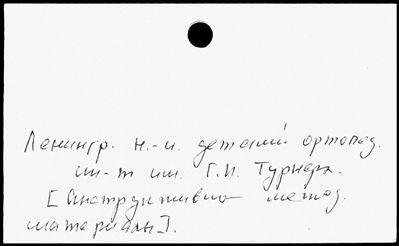 Ленингр. н.-и. детский ортопед.
ин-т им. Г.И. Турнера.
[Инструктивно метод.
материалы].